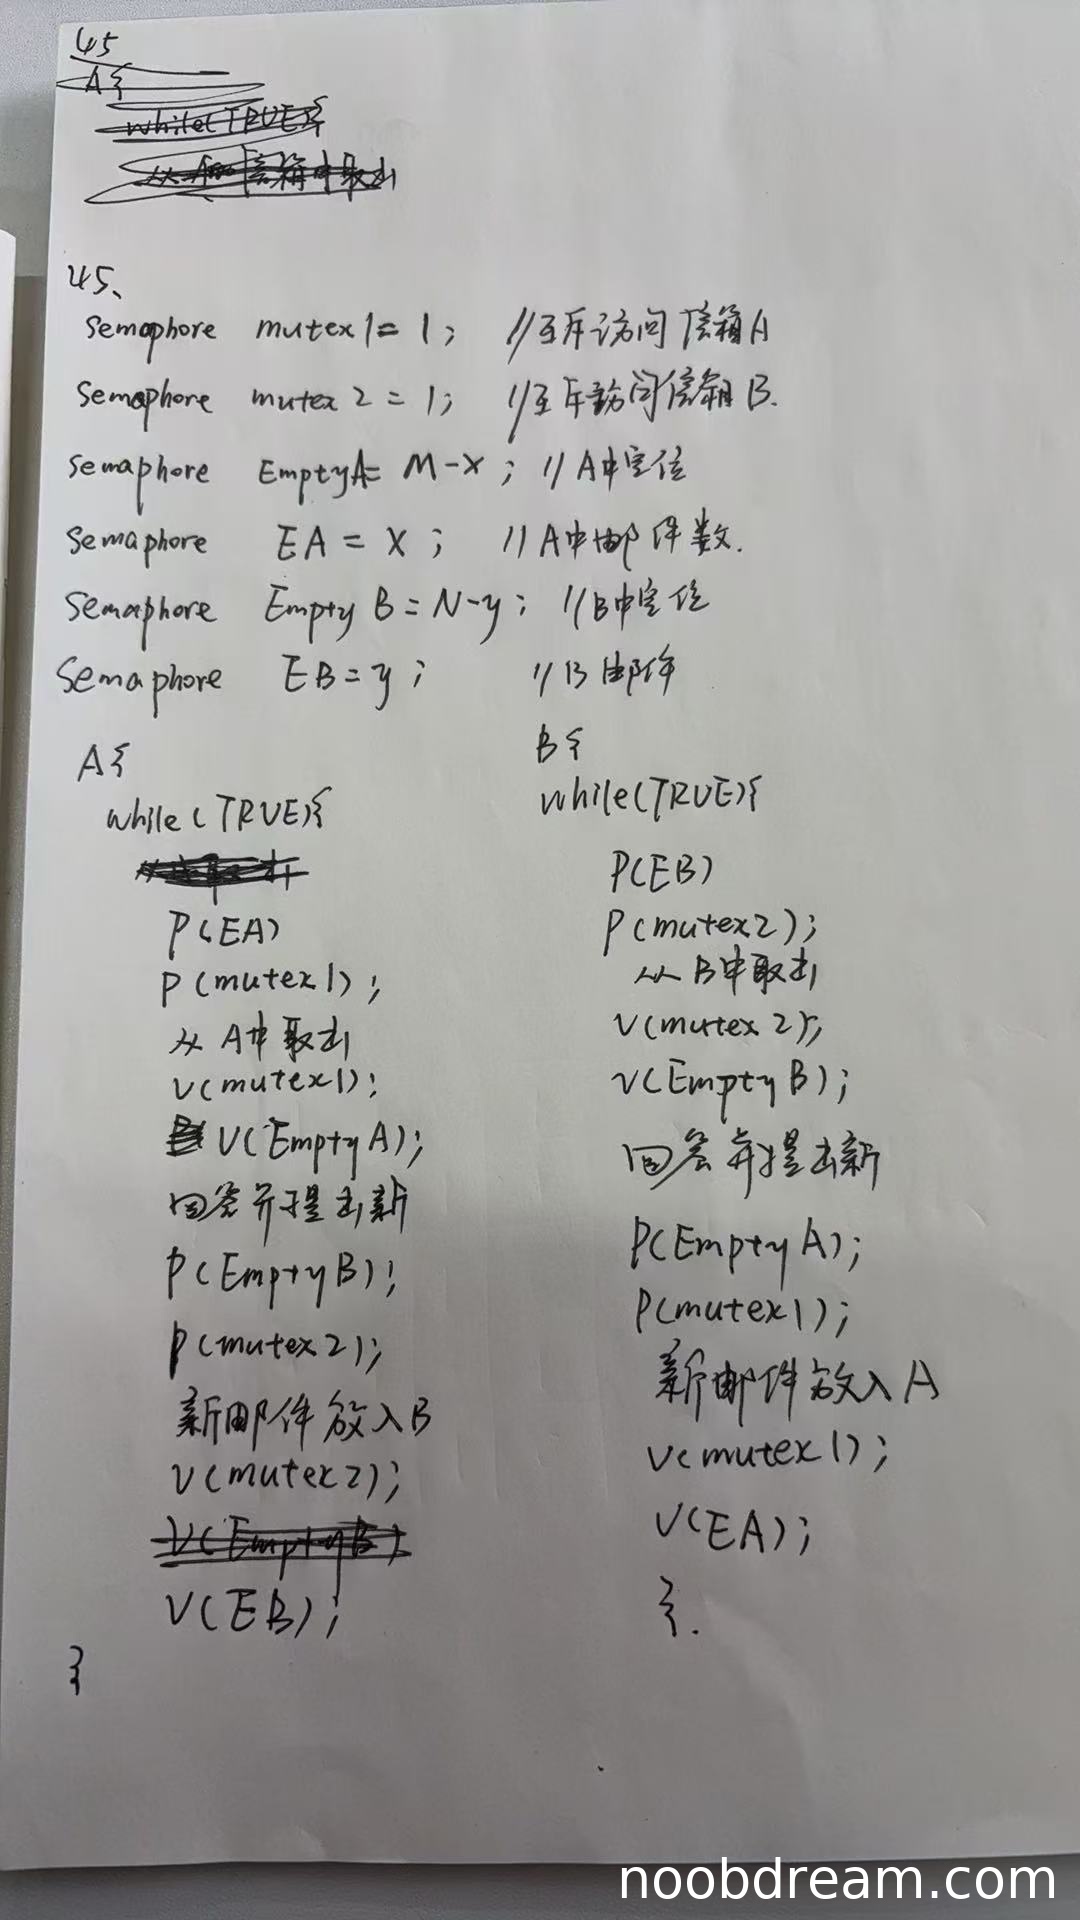 45
A{
while(TRUE){
45、
semaphore mutex1 = 1; //互斥访问信箱A
semaphore mutex2 = 1; //互斥访问信箱B.
semaphore EmptyA = M-x; //A中空位
semaphore EA = x; //A中邮件数.
semaphore Empty B = N-y; //B中空位
semaphore EB = y; //B邮件
A{
while(TRUE){
P(EA)
P(mutex1);
从A中取出
V(mutex1);
V(EmptyA);
回答并提出新
P(EmptyB);
P(mutex2);
新邮件放入B
V(mutex2);
V(EmptyB)
V(EB);
}
B{
while(TRUE){
P(EB)
P(mutex2);
从B中取出
V(mutex2);
V(EmptyB);
回答并提出新
P(EmptyA);
P(mutex1);
新邮件放入A
V(mutex1);
V(EA);
}.
noobdream.com